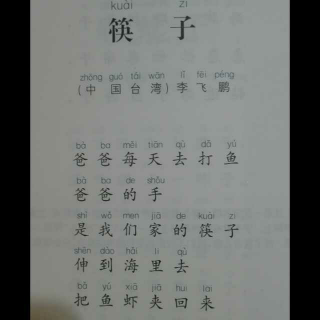 kuài zi
筷子
zhōng guó tái wān lǐ fēi péng
(中国台湾)李飞鹏
bà ba měi tiān qù dǎ yú
爸爸每天去打鱼
bà ba de shǒu
爸爸的手
shì wǒ men jiā de kuài zi
是我们家的筷子
shēn dào hǎi lǐ qù
伸到海里去
bǎ yú xiā jiā huí lái
把鱼虾夹回来